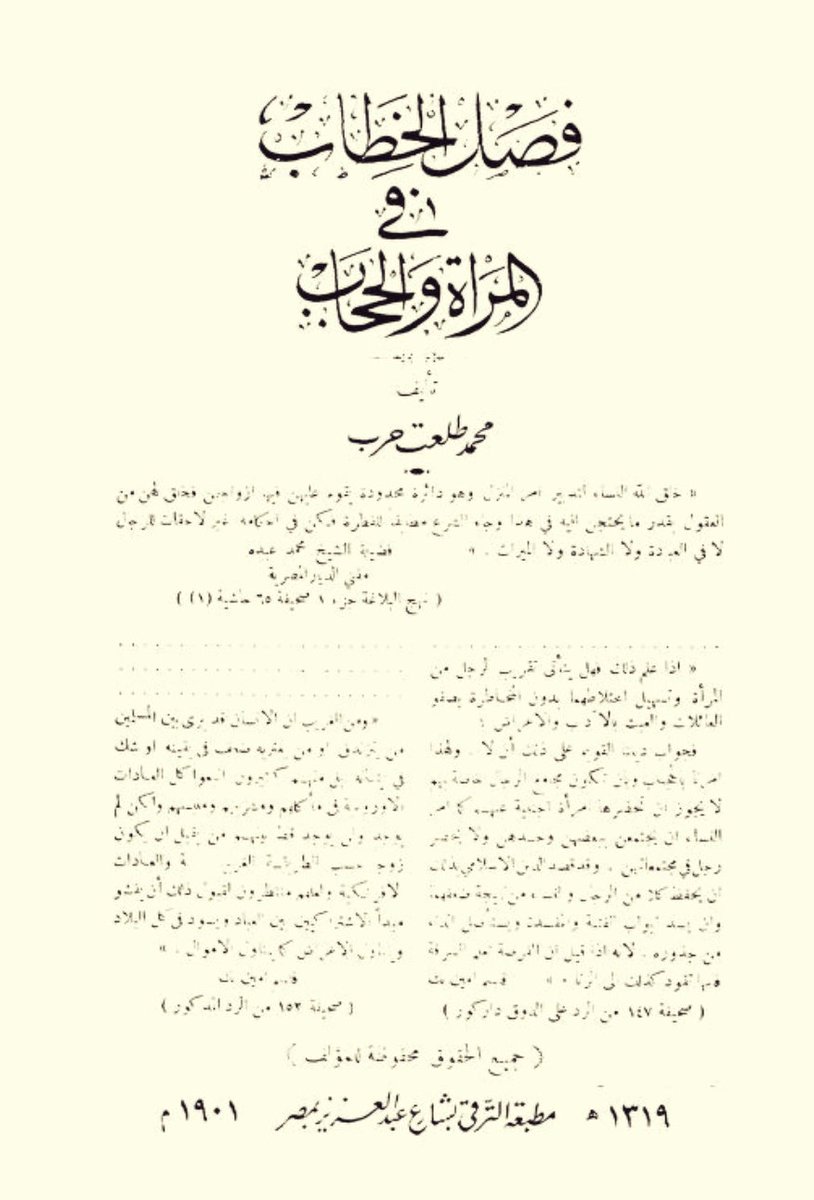 فصل الخطاب
في
المرأة والحجاب
تأليف
محمد طلعت حرب
« خلق الله النساء لتدبير امر المنزل وهو دائرة محدودة يقوم عليهن فيها ازواجهن فخلق لهن من
العقول بقدر ما يحتجن اليه في هذا وجاء الشرع مطابقا للفطرة فكن في احكامه غير لاحقات للرجل
لا في العبادة ولا الشهادة ولا الميراث . »
فضيلة الشيخ محمد عبده
مفتي الديار المصرية
( نهج البلاغة جزء ١ صحيفة ٦٥ حاشية (١) )
« اذا علم ذلك فهل يتأتى تقريب الرجل من
المرأة وتسهيل اختلاطهما بدون المخاطرة بصفو
العائلات والعبث بالآداب والاعراض ؟
فجواب ديننا القويم على ذلك أن لا . ولهذا
امرنا بالحجب وبان تكون مجامع الرجال خاصة بهم
لا يجوز ان تحضرها امرأة اجنبية عنهم كما امر
النساء ان يجتمعن ببعضهن وحدهن ولا يحضر
رجل في مجتمعاتهن . وقد قصد الدين الاسلامي بذلك
ان يحفظ كلا من الرجل والنساء من نتيجة ضعفهما
وان يسد ابواب الفتنة والمفسدة ويستأصل الداء
من جذوره . لانه اذا قيل ان الفرصة تعلم السرقة
فانها تقود كذلك الى الزنا . » قاسم امين بك
( صحيفة ١٤٧ من الرد على الدوق داركور )
« ومن الغريب ان الانسان قد يرى بين المسلمين
من يتزندق او من يعتريه ضعف في يقينه او شك
في إيمانه بل منهم كثيرون اتبعوا كل العادات
الاوروبية في مأكلهم ومشربهم وملبسهم ولكن لم
يوجد ولن يوجد قط بينهم من يقبل ان يكون
زوجا حسب الطريقة الغربية والعادات
الافرنكية ولعلهم منتظرون لقبول ذلك أن يفشو
مبدأ الاشتراكيين بين العباد ويسود في كل البلاد
ويتناول الاعراض كما يتناول الاموال . »
قاسم امين بك
( صحيفة ١٥٣ من الرد المذكور )
( جميع الحقوق محفوظة للمؤلف )
١٣١٩ ه مطبعة الترقي بشارع عبد العزيز بمصر ١٩٠١ م